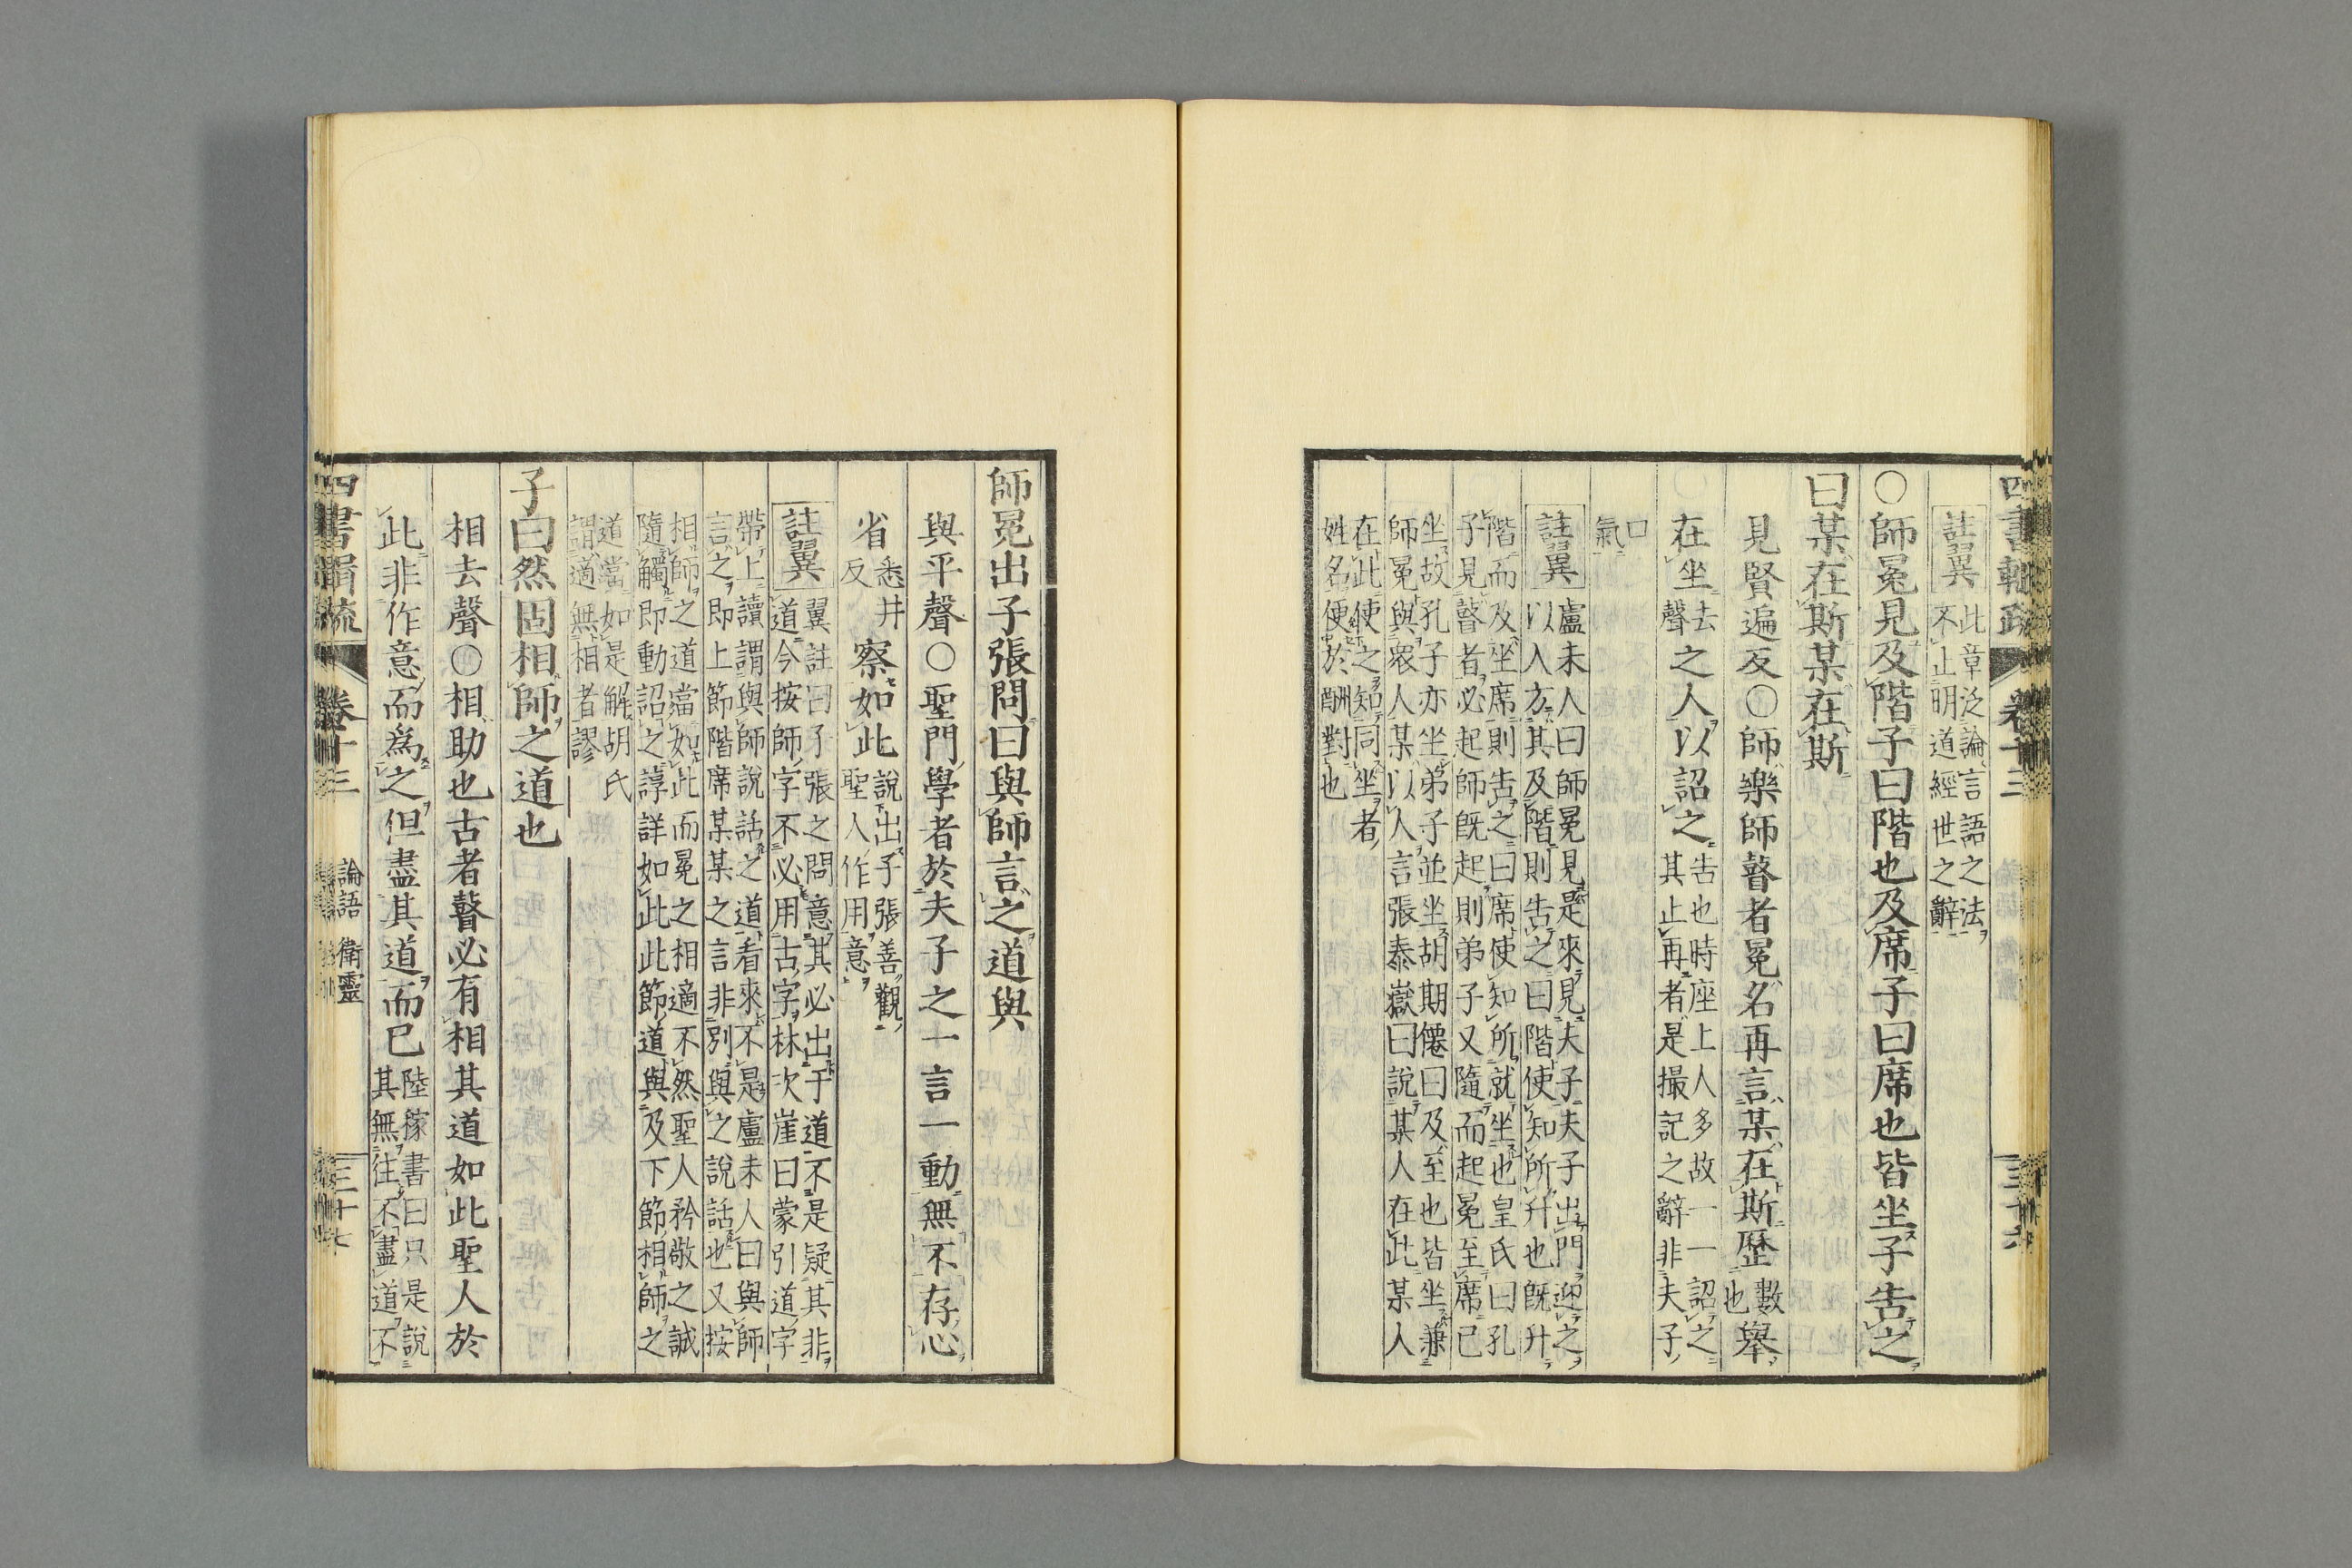 四書輯疏 卷十三 三十六
註翼 此章泛論言語之法
不止明道經世之辭
○師冕見及階子曰階也及席子曰席也皆坐子告之
曰某在斯某在斯
見賢遍反○師樂師瞽者冕名再言某在斯歷數也舉
在坐去聲之人以詔之 告也時座上人多故一一詔之
其止再者是撮記之辭非夫子
口
氣
註翼 盧未人曰師冕見是來見夫子夫子出門迎之
以入方其及階則告之曰階使知所升也既升
階而及坐席則告之曰席使知所就坐也皇氏曰孔
子見瞽者必起師既起則弟子又隨而起冕至席已
坐故孔子亦坐弟子並坐胡期僊曰及至也皆坐兼
師冕與衆人某以人言張泰嶽曰說某人在此某人
在此使之知同坐者
姓名便於酬對也
師冕出子張問曰與師言之道與
與平聲○聖門學者於夫子之一言一動無不存心
省悉井反察如此 說出子張善觀
聖人作用意
註翼 翼註曰子張之問意其必出于道不是疑其非
道今按師字不必用古字林次崖曰蒙引道字
帶上讀謂與師說話之道看來不是盧未人曰與師
言之即上節階席某某之言非別與之說話也又按
相師之道當如此而冕之相適不然聖人矜敬之誠
隨觸即動詔之諄詳如此此節道與及下節相師之
道當如是解胡氏
謂道無相者謬
子曰然固相師之道也
相去聲○相助也古者瞽必有相其道如此聖人於
此非作意而為之但盡其道而已 陸稼書曰只是說
其無往不盡道不
四書輯疏 卷十三 論語 衛靈 三十七